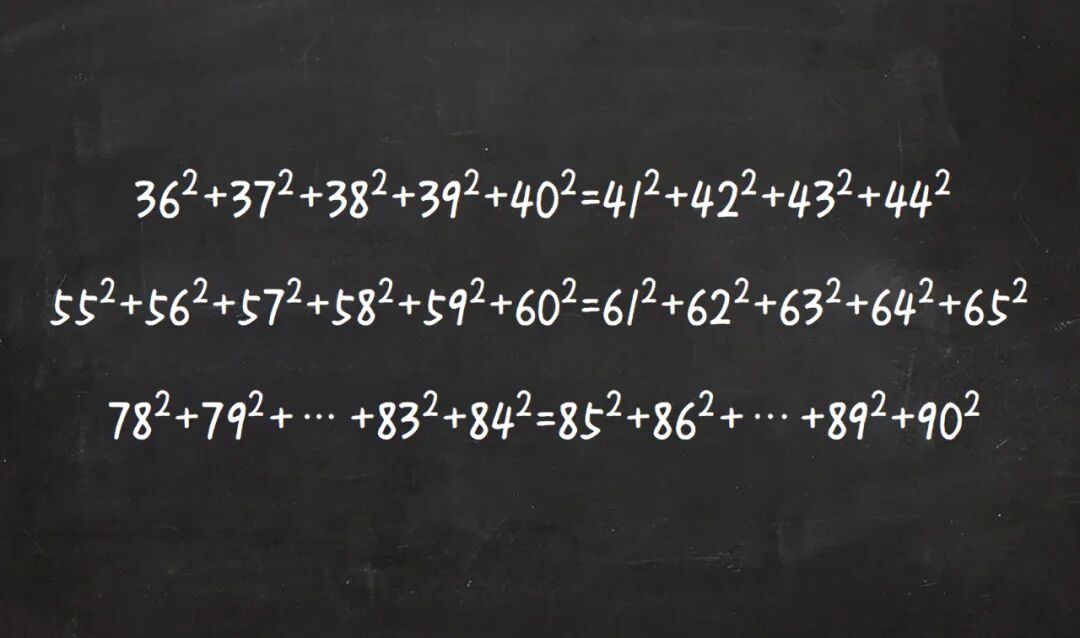 36²+37²+38²+39²+40²=41²+42²+43²+44²
55²+56²+57²+58²+59²+60²=61²+62²+63²+64²+65²
78²+79²+ ··· +83²+84²=85²+86²+ ··· +89²+90²